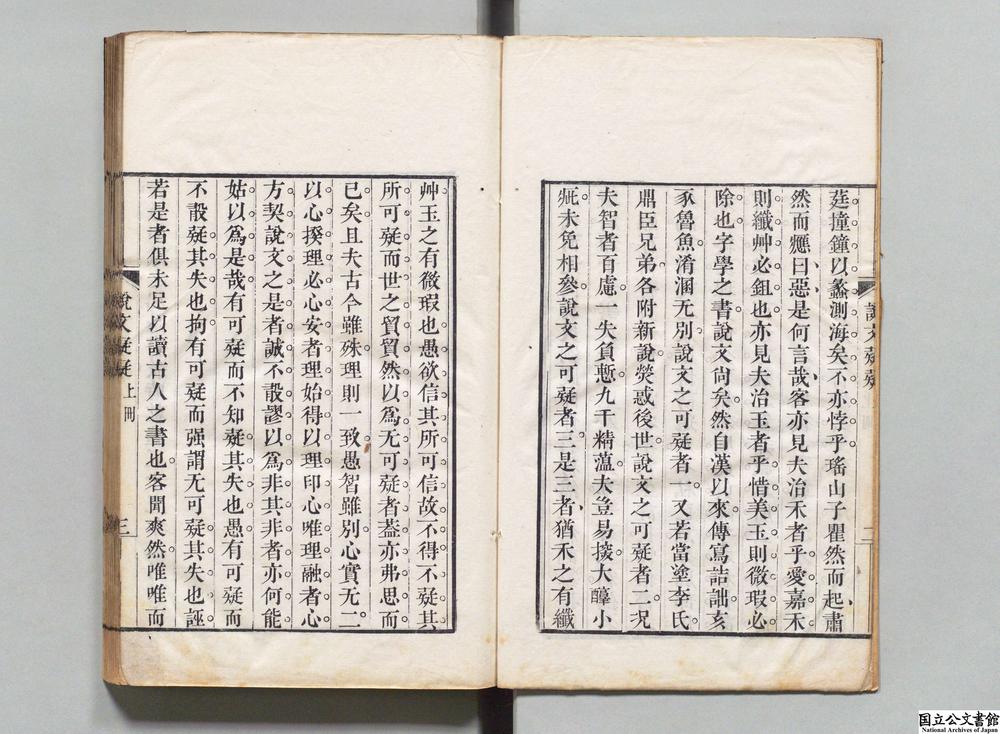 說文疑疑
二
莛撞鐘以蠡測海矣不亦悖乎瑤山子瞿然而起肅
然而應曰惡是何言哉客亦見夫治禾者乎愛嘉禾
則纖艸必鉏也亦見夫治玉者乎惜美玉則微瑕必
除也字學之書說文尚矣然自漢以來傳寫詰詘亥
豕魯魚淆溷无別說文之可疑者一又若當塗李氏
鼎臣兄弟各附新說熒惑後世說文之可疑者二況
夫智者百慮一失負慙九千精薀夫豈易接大醇小
疵未免相參說文之可疑者三是三者猶禾之有纖
艸玉之有微瑕也愚欲信其所可信故不得不疑其
所可疑而世之貿貿然以爲无可疑者葢亦弗思而
已矣且夫古今雖殊理則一致愚智雖別心實无二
以心揆理必心安者理始得以理印心唯理融者心
方契說文之是者誠不敢謬以爲非其非者亦何能
姑以爲是哉有可疑而不知疑其失也愚有可疑而
不敢疑其失也拘有可疑而强謂无可疑其失也誣
若是者俱未足以讀古人之書也客聞爽然唯唯而
說文疑疑 上冊
三
国立公文書館
National Archives of Japan